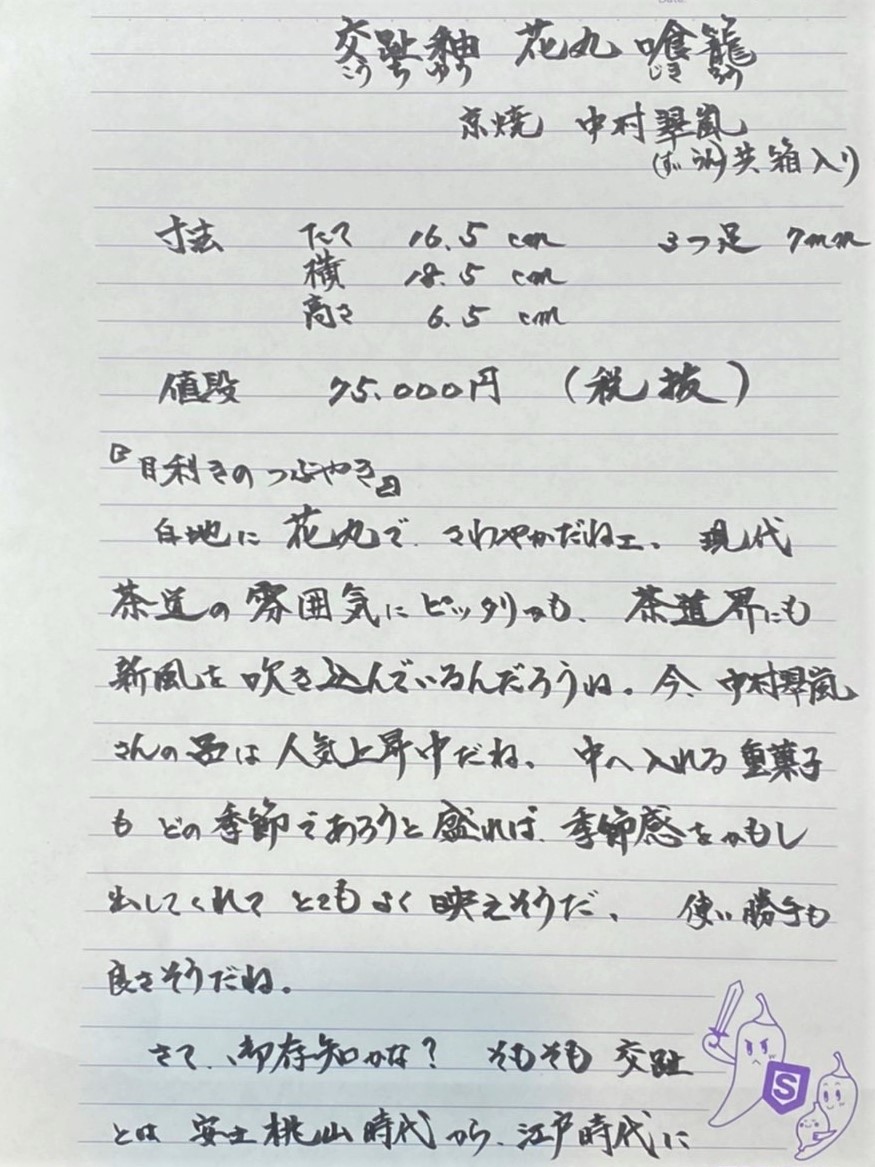 Date
交趾釉 花丸 喰籠
こうち ゆう じき ろう
京焼 中村翠嵐
(すいらん)共箱入り
寸法 たて 16.5 cm 3つ足 7mm
横 18.5 cm
高さ 6.5 cm
値段 75.000円 (税抜)
『目利きのつぶやき』
白地に 花丸で、さわやかだねェ。現代
茶道の雰囲気にピッタリかも、茶道界にも
新風を吹き込んでいるんだろうね。今、中村翠嵐
さんの品は人気上昇中だね、中へ入れる重菓子
も どの季節であろうと盛れば、季節感をかもし
出してくれて とてもよく映えそうだ、使い勝手も
良さそうだね。
さて、御存知かな? そもそも 交趾
とは 安土桃山時代から、江戸時代に
S